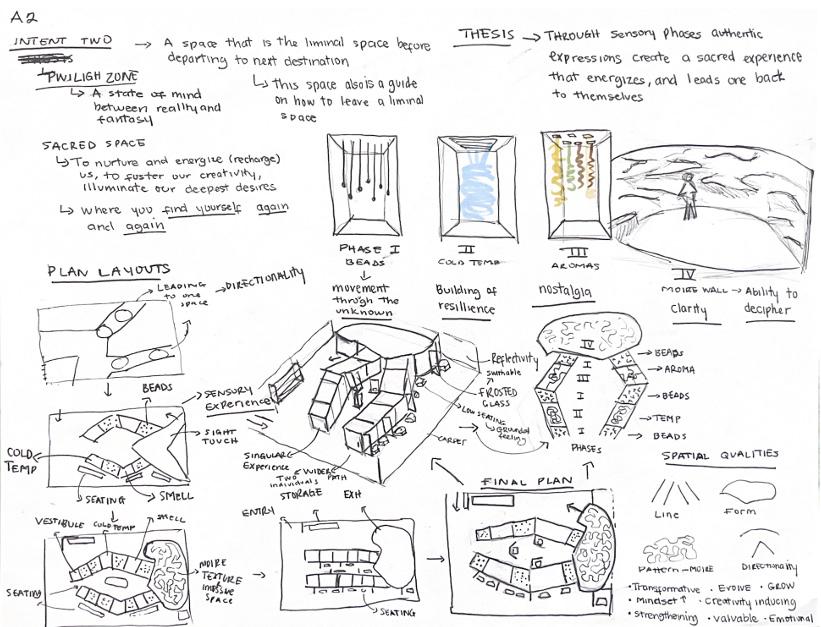 A2
INTENT TWO → A space that is the liminal space before
departing to next destination
↳ this space also is a guide
on how to leave a liminal
space
↳ TWILIGH ZONE
↳ A state of mind
between reality and
fantasy
THESIS → THROUGH sensory phases authentic
expressions create a sacred experience
that energizes, and leads one back
to themselves
SACRED SPACE
↳ To nurture and energize (recharge)
us, to foster our creativity,
illuminate our deepest desires
↳ where you find yourself again
and again
PHASE I
BEADS
↓
movement
through the
unknown
II
COLD TEMP
Building of
resillience
III
AROMAS
nostalgia
IV
MOIRE WALL → Ability to
decipher
clarity
PLAN LAYOUTS
LEADING
to one
space
→ DIRECTIONALITY
BEADS
SENSORY
Experience
SIGHT
TOUCH
COLD
TEMP
SEATING
SMELL
VESTIBULE
COLD TEMP
SMELL
SEATING
MOIRE
TEXTURE
IMMERSIVE
SPACE
Reflectivity
switchable
FROSTED
GLASS
LOW SEATING
↳ Grounded
feeling
CARPET
SINGULAR
Experience
TWO
individuals
WIDER
PATH
STORAGE
EXIT
ENTRY
SEATING
IV
I
III
I
II
I
PHASES
BEADS
AROMA
BEADS
TEMP
BEADS
FINAL PLAN
SPATIAL QUALITIES
Line
Form
Pattern-MOIRE
DIRECTIONALITY
• Transformative • Evolve • GROW
• Mindset ↑ • Creativity inducing
• Strengthening • Valvable • Emotional